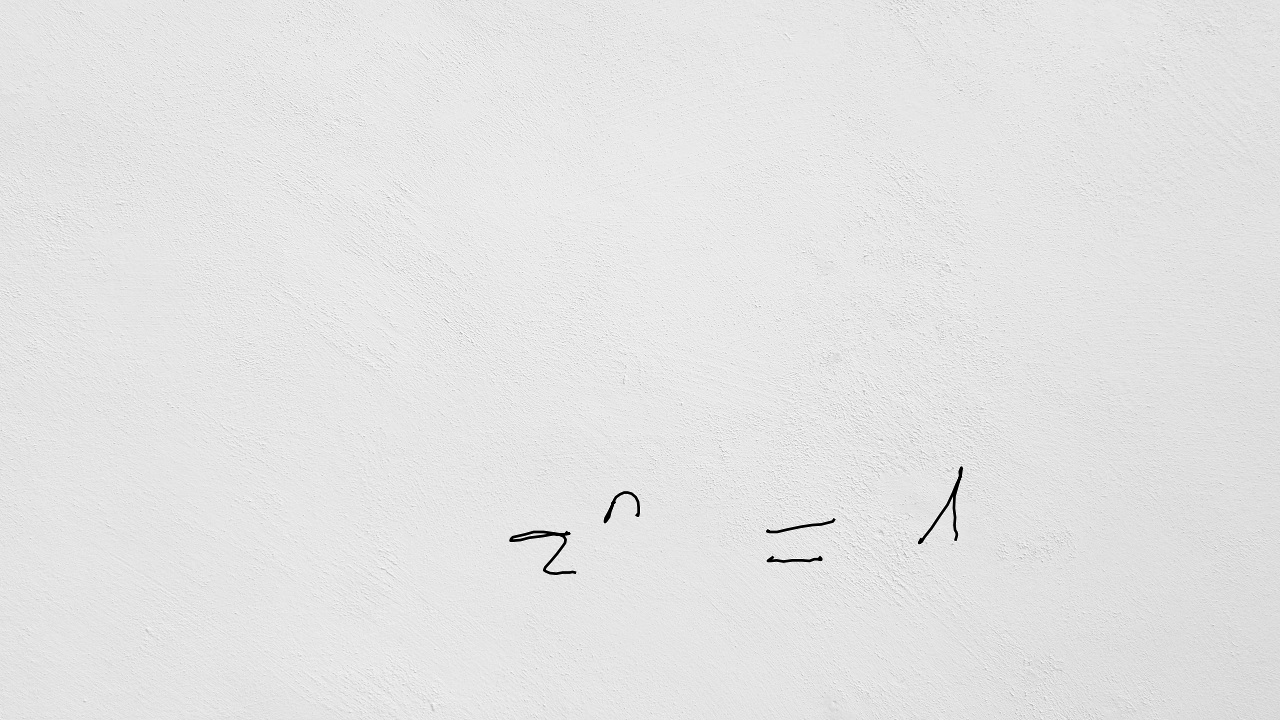 zⁿ = 1